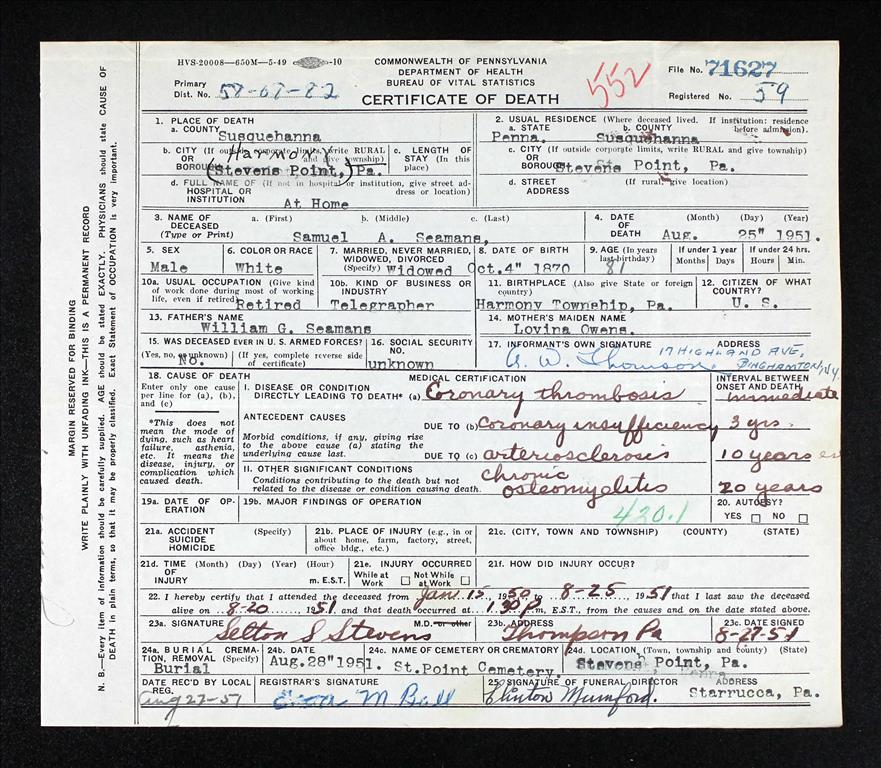 HVS-20008—650M—5-49 -10
COMMONWEALTH OF PENNSYLVANIA
DEPARTMENT OF HEALTH
BUREAU OF VITAL STATISTICS
CERTIFICATE OF DEATH
552
File No. 71627
Primary
Dist. No. 58-67-82
Registered No. 59
MARGIN RESERVED FOR BINDING
WRITE PLAINLY WITH UNFADING INK—THIS IS A PERMANENT RECORD
N. B.—Every item of information should be carefully supplied. AGE should be stated EXACTLY. PHYSICIANS should state CAUSE OF
DEATH in plain terms, so that it may be properly classified. Exact Statement of OCCUPATION is very important.
1. PLACE OF DEATH
a. COUNTY Susquehanna
b. CITY (If outside corporate limits, write RURAL
OR and give township)
BOROUGH
Harmony
(Stevens Point,) Pa.
c. LENGTH OF
STAY (In this
place)
d. FULL NAME OF (If not in hospital or institution, give street ad-
HOSPITAL OR dress or location)
INSTITUTION At Home
2. USUAL RESIDENCE (Where deceased lived. If institution: residence
before admission).
a. STATE b. COUNTY
Penna. Susquehanna
c. CITY (If outside corporate limits, write RURAL and give township)
OR
BOROUGH Stevens Point, Pa.
d. STREET (If rural, give location)
ADDRESS
3. NAME OF a. (First) b. (Middle) c. (Last)
DECEASED
(Type or Print) Samuel A. Seamans,
4. DATE (Month) (Day) (Year)
OF
DEATH Aug. 25" 1951.
5. SEX
Male
6. COLOR OR RACE
White
7. MARRIED, NEVER MARRIED,
WIDOWED, DIVORCED
(Specify) Widowed
8. DATE OF BIRTH
Oct.4" 1870
9. AGE (In years
last birthday)
81
If under 1 year
Months Days
If under 24 hrs.
Hours Min.
10a. USUAL OCCUPATION (Give kind
of work done during most of working
life, even if retired) Retired
10b. KIND OF BUSINESS OR
INDUSTRY
Telegrapher
11. BIRTHPLACE (Also give State or foreign
country)
Harmony Township, Pa.
12. CITIZEN OF WHAT
COUNTRY?
U. S.
13. FATHER'S NAME
William G. Seamans
14. MOTHER'S MAIDEN NAME
Lovina Owens.
15. WAS DECEASED EVER IN U. S. ARMED FORCES?
(Yes, no, or unknown) (If yes, complete reverse side
of certificate)
No.
16. SOCIAL SECURITY
NO.
unknown
17. INFORMANT'S OWN SIGNATURE ADDRESS
A. W. Thomson 17 HIGHLAND AVE,
BINGHAMTON, N.Y.
18. CAUSE OF DEATH
Enter only one cause
per line for (a), (b),
and (c)
*This does not
mean the mode of
dying, such as heart
failure, asthenia,
etc. It means the
disease, injury, or
complication which
caused death.
MEDICAL CERTIFICATION
INTERVAL BETWEEN
ONSET AND DEATH
I. DISEASE OR CONDITION
DIRECTLY LEADING TO DEATH* (a) Coronary thrombosis immediate
ANTECEDENT CAUSES
Morbid conditions, if any, giving rise
to the above cause (a) stating the
underlying cause last.
DUE TO (b) Coronary insufficiency 3 yrs.
DUE TO (c) arteriosclerosis 10 years est
II. OTHER SIGNIFICANT CONDITIONS
Conditions contributing to the death but not
related to the disease or condition causing death.
chronic
osteomyelitis 20 years
19a. DATE OF OP-
ERATION
19b. MAJOR FINDINGS OF OPERATION
420.1
20. AUTOPSY?
YES NO
21a. ACCIDENT (Specify)
SUICIDE
HOMICIDE
21b. PLACE OF INJURY (e.g., in or
about home, farm, factory, street,
office bldg., etc.)
21c. (CITY, TOWN, AND TOWNSHIP) (COUNTY) (STATE)
21d. TIME (Month) (Day) (Year) (Hour)
OF
INJURY m. E.S.T.
21e. INJURY OCCURRED
While at Not While
Work at Work
21f. HOW DID INJURY OCCUR?
22. I hereby certify that I attended the deceased from Jan. 15, 1950 to 8-25, 1951 that I last saw the deceased
alive on 8-20, 1951, and that death occurred at 1:30 P m., E.S.T., from the causes and on the date stated above.
23a. SIGNATURE M.D. or other
Selton S Stevens
23b. ADDRESS
Thompson Pa
23c. DATE SIGNED
8-27-51
24a. BURIAL CREMA-
TION, REMOVAL (Specify)
Burial
24b. DATE
Aug.28"1951.
24c. NAME OF CEMETERY OR CREMATORY
St.Point Cemetery.
24d. LOCATION (Town, township and county) (State)
Stevens Point, Pa.
Penna.
DATE REC'D BY LOCAL
REG.
Aug 27-51
REGISTRAR'S SIGNATURE
M Ball
25. SIGNATURE OF FUNERAL DIRECTOR ADDRESS
Clinton Mumford. Starrucca, Pa.